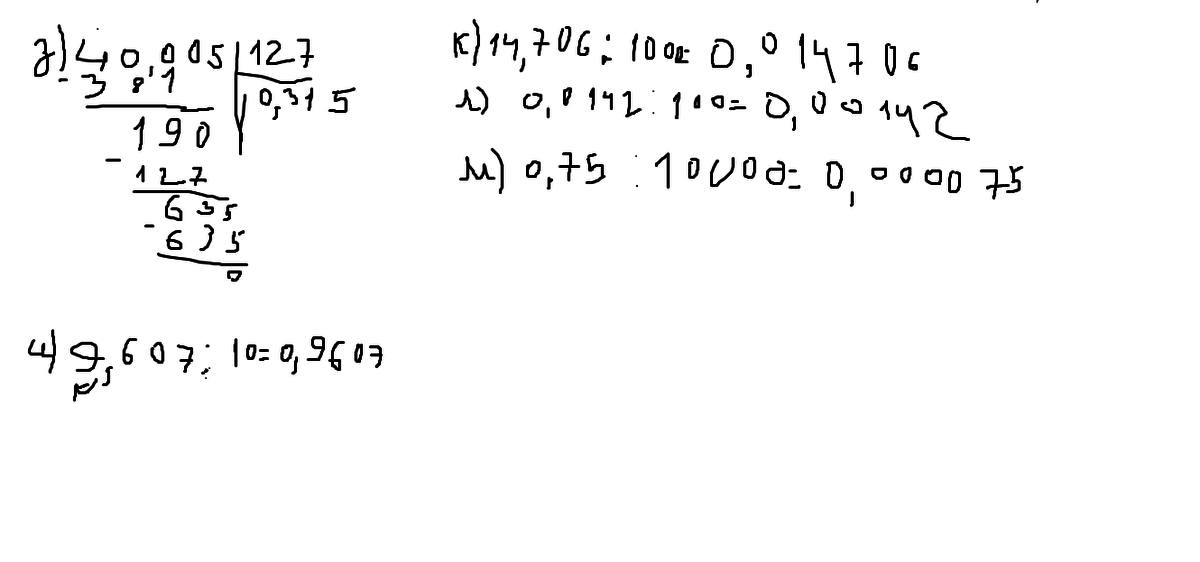 з) 40,005 | 127
- 381 | 0,315
190
- 127
635
- 635
0
и) 9,607 : 10 = 0,9607
к) 14,706 : 1000 = 0,014706
л) 0,0142 : 100 = 0,00142
м) 0,75 : 10000 = 0,000075